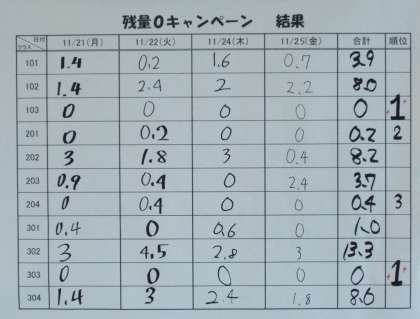 残量0キャンペーン 結果
日付 クラス 11/21(月) 11/22(火) 11/24(木) 11/25(金) 合計 順位
101 1.4 0.2 1.6 0.7 3.9
102 1.4 2.4 2 2.2 8.0
103 0 0 0 0 0 1
201 0 0.2 0 0 0.2 2
202 3 1.8 3 0.4 8.2
203 0.9 0.4 0 2.4 3.7
204 0 0.4 0 0 0.4 3
301 0.4 0 0.6 0 1.0
302 3 4.5 2.8 3 13.3
303 0 0 0 0 0 1
304 1.4 3 2.4 1.8 8.6